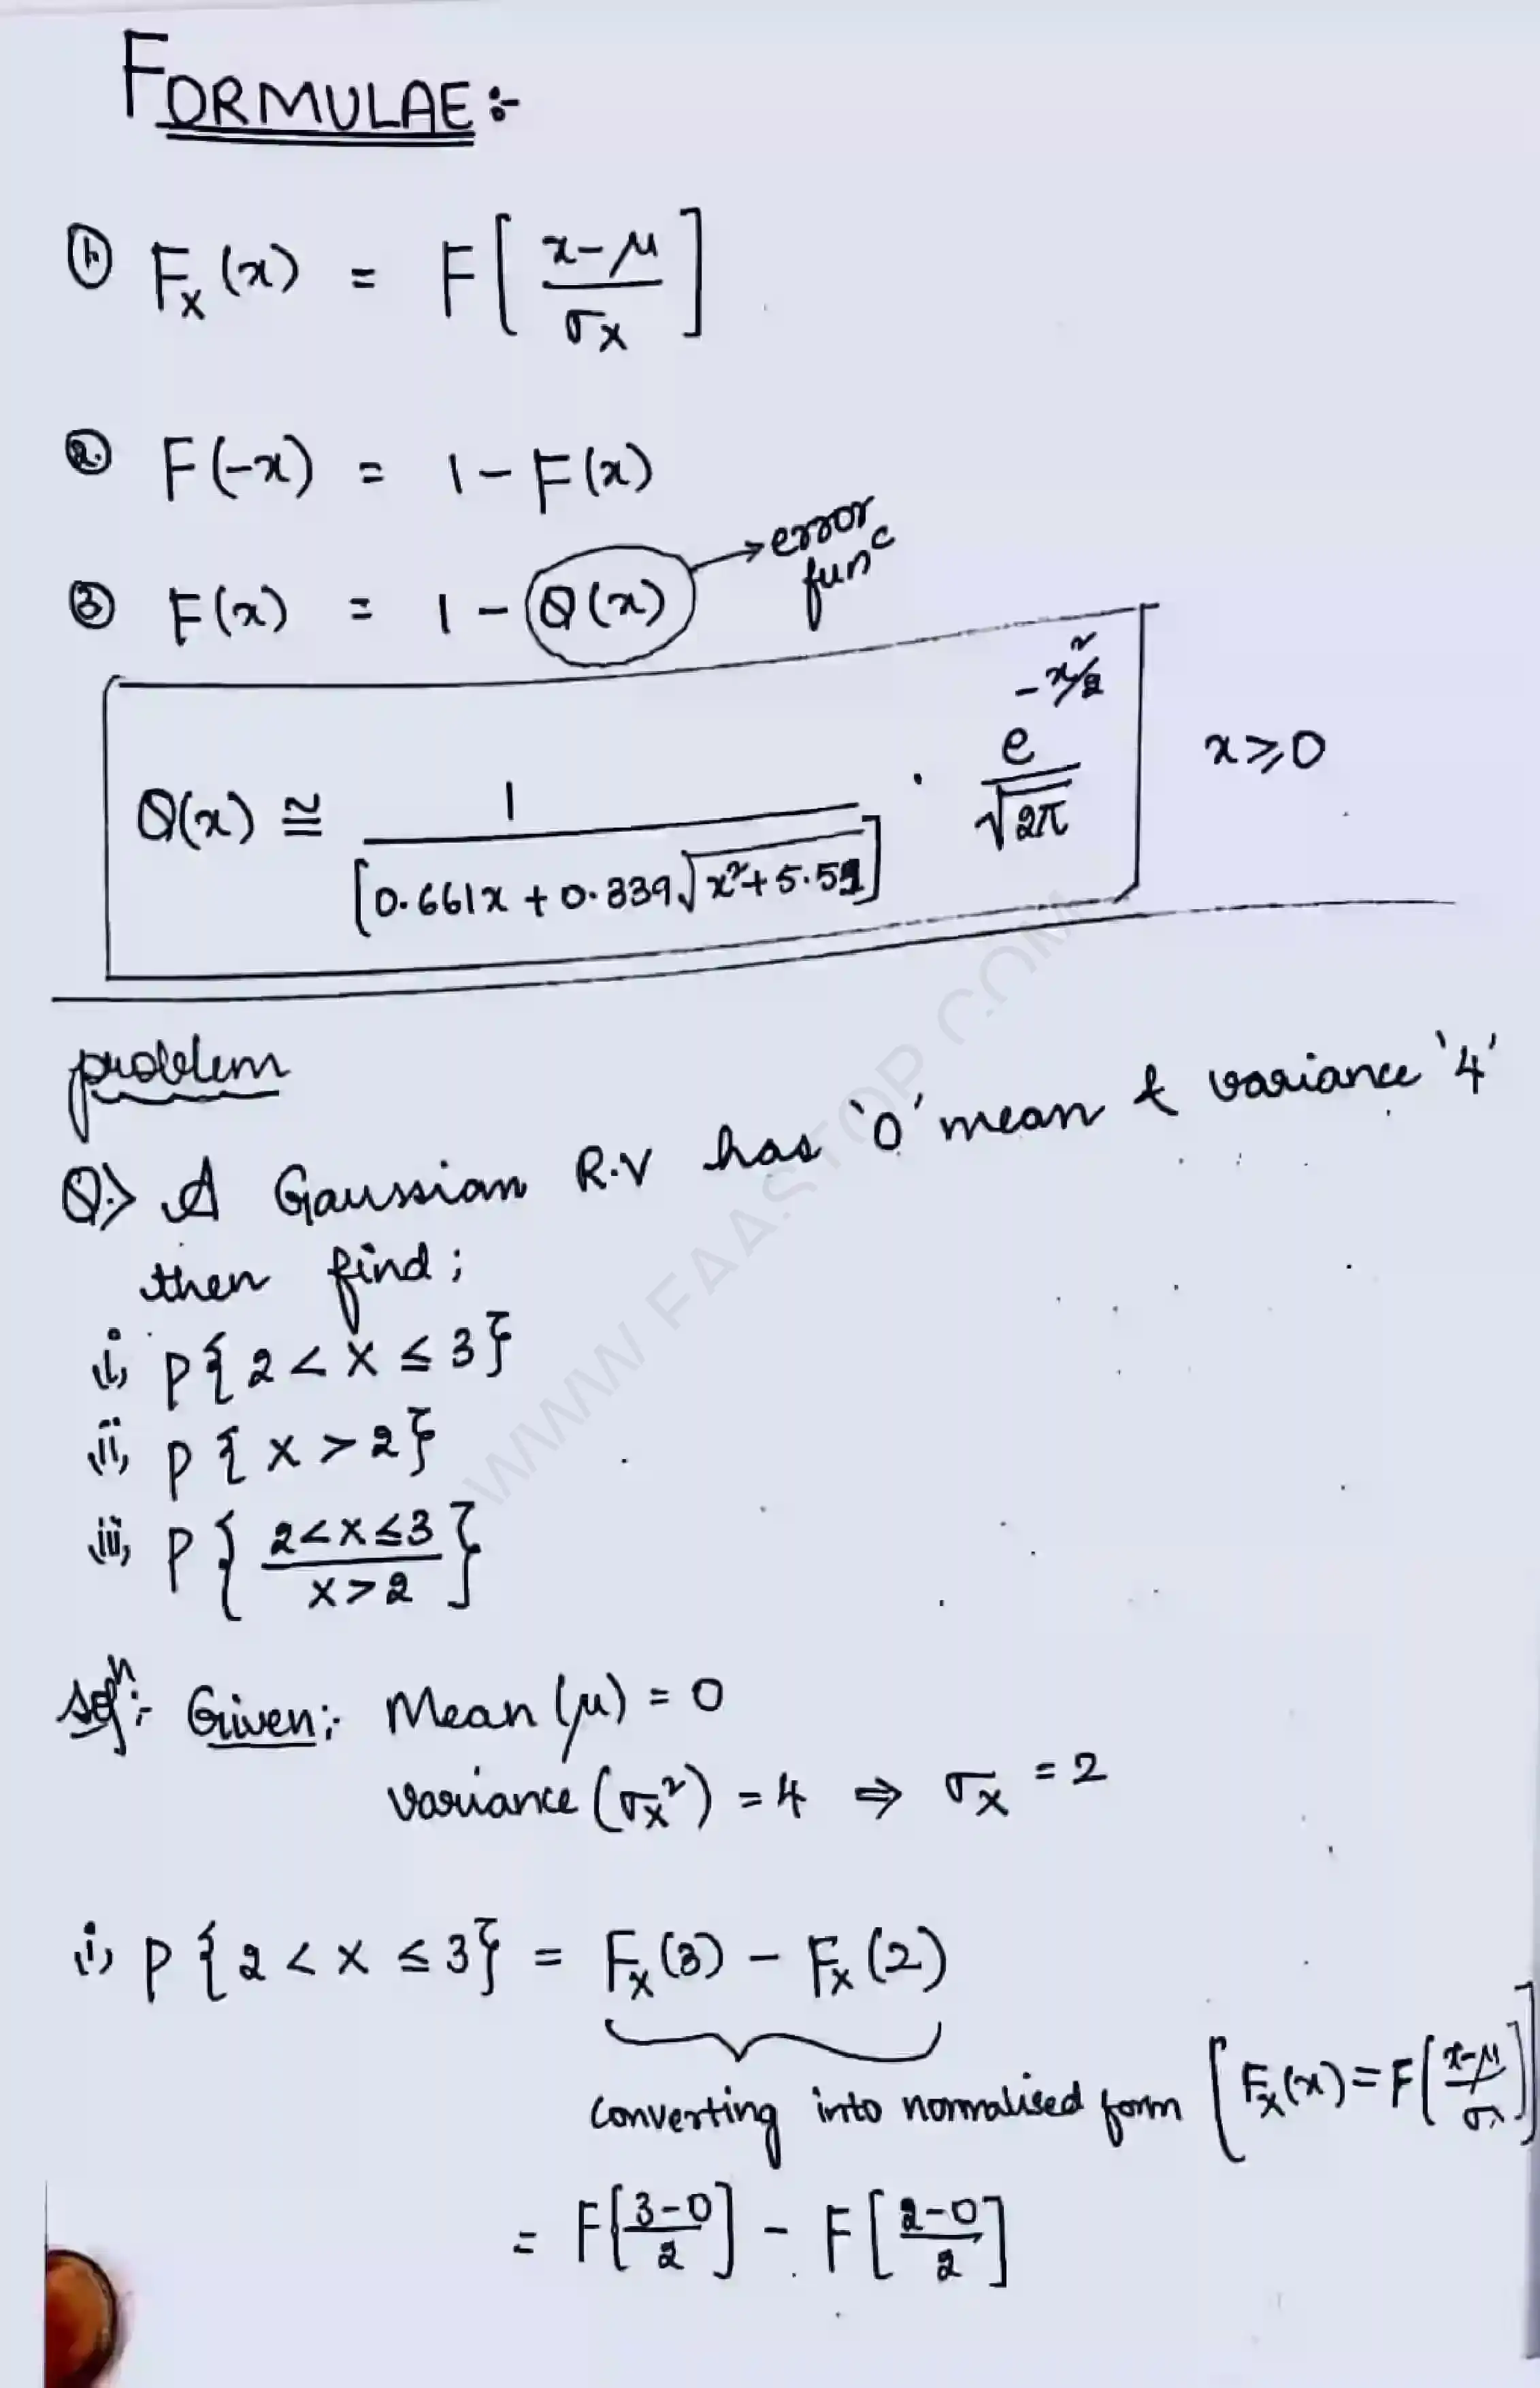 FORMULAE :-
① Fₓ(x) = F[ (x-μ)/σₓ ]
② F(-x) = 1 - F(x)
③ F(x) = 1 - Q(x) → error funᶜ
Q(x) ≅ 1/[0.661x + 0.339√(x²+5.51)] · e^(-x²/2)/√2π x ≥ 0
problem
Q.> A Gaussian R.V has '0' mean & variance '4'
then find ;
i, P{2 < X ≤ 3}
ii, P{X > 2}
iii, P{ (2<X≤3)/(X>2) }
Solⁿ:- Given:- Mean (μ) = 0
Variance (σₓ²) = 4 ⇒ σₓ = 2
i, P{2 < X ≤ 3} = Fₓ(3) - Fₓ(2)
converting into normalised form [Fₓ(x) = F[(x-μ)/σₓ]]
= F[(3-0)/2] - F[(2-0)/2]
WWW.FAASTOP.COM